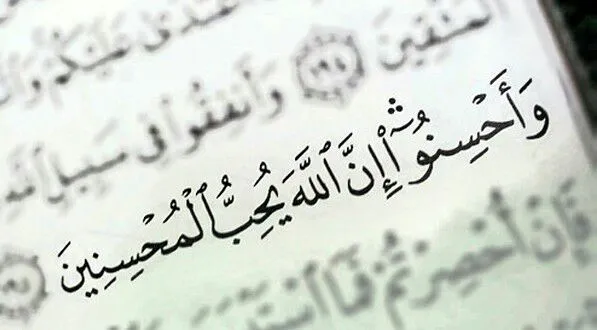 عَلَيْكُمْ وَٱ
ٱلْمُتَّقِينَ ١٩٤ وَأَنفِقُوا۟ فِى سَبِيلِ ٱللَّهِ
وَأَحْسِنُوٓا۟ۛ إِنَّ ٱللَّهَ يُحِبُّ ٱلْمُحْسِنِينَ ١٩٥
فَإِنْ أُحْصِرْتُمْ فَمَا ٱسْتَيْسَرَ